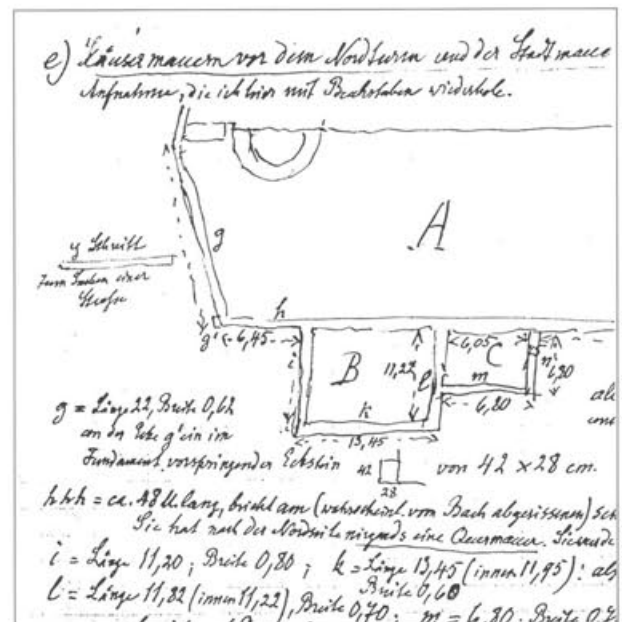 e) Häusermauern vor dem Nordturm und der Stadtmaue
Aufnahme, die ich hier mit Buchstaben wiederhole.
A
g
g Schnitt
zum Suchen einer
Straße
h
g' 6,45
i
B
11,22
l
k
13,45
6,05
C
m
6,80
n'
6,80
g = Länge 22, Breite 0,62
an der Ecke g' ein im
Fundament vorspringender Eckstein
42
28
von 42 x 28 cm.
als
h h h = ca. 48 M. lang, bricht am (wahrscheinl. vom Bach abgerissenen)
Sie hat nach der Nordseite nirgends eine Quermauer. Sie wurde
i = Länge 11,20; Breite 0,80; k = Länge 13,45 (innen 11,95): als
Breite 0,60
l = Länge 11,82 (innen 11,22), Breite 0,70; m = 6,80, Breite 0,7